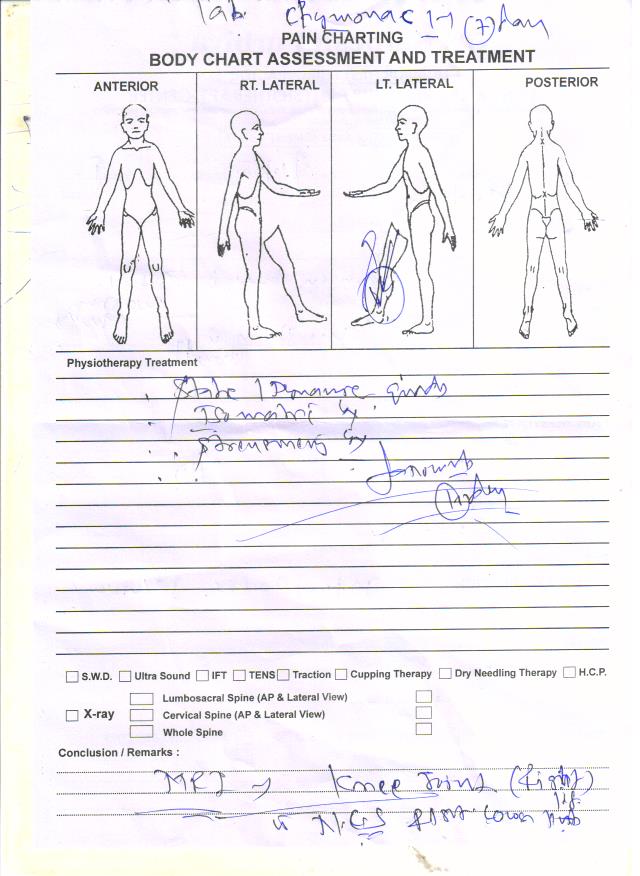 Tab Chymonac 1-1 (7) day
PAIN CHARTING
BODY CHART ASSESSMENT AND TREATMENT
ANTERIOR RT. LATERAL LT. LATERAL POSTERIOR
Physiotherapy Treatment
Static
Isometric
S.W.D. Ultra Sound IFT TENS Traction Cupping Therapy Dry Needling Therapy H.C.P.
Lumbosacral Spine (AP & Lateral View)
X-ray Cervical Spine (AP & Lateral View)
Whole Spine
Conclusion / Remarks :
MRI Knee Joint (Right)
N.C.S Lower limb